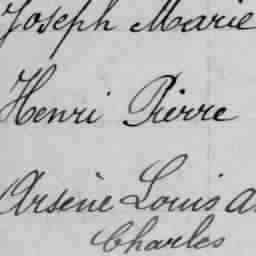 Joseph Marie
Henri Pierre
Arsène Louis
Charles